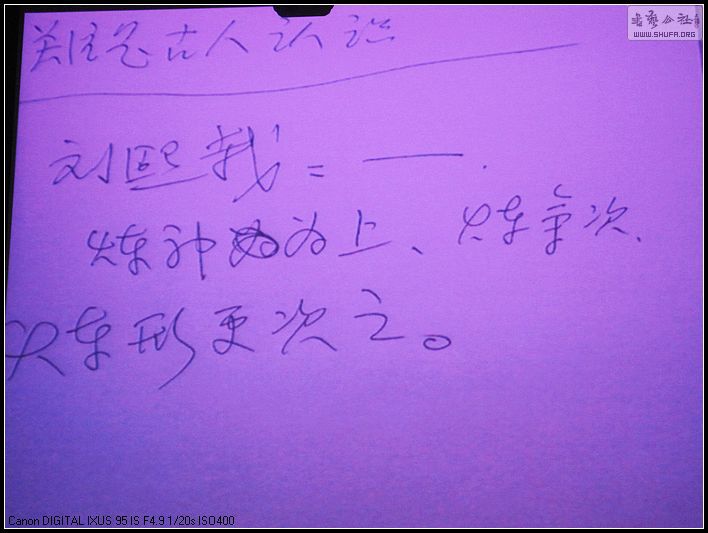 书艺公社
WWW.SHUFA.ORG
关注 古人认识
刘熙载：——.
炼神为上、炼气次、
炼形更次之。
Canon DIGITAL IXUS 95 IS F4.9 1/20s ISO400